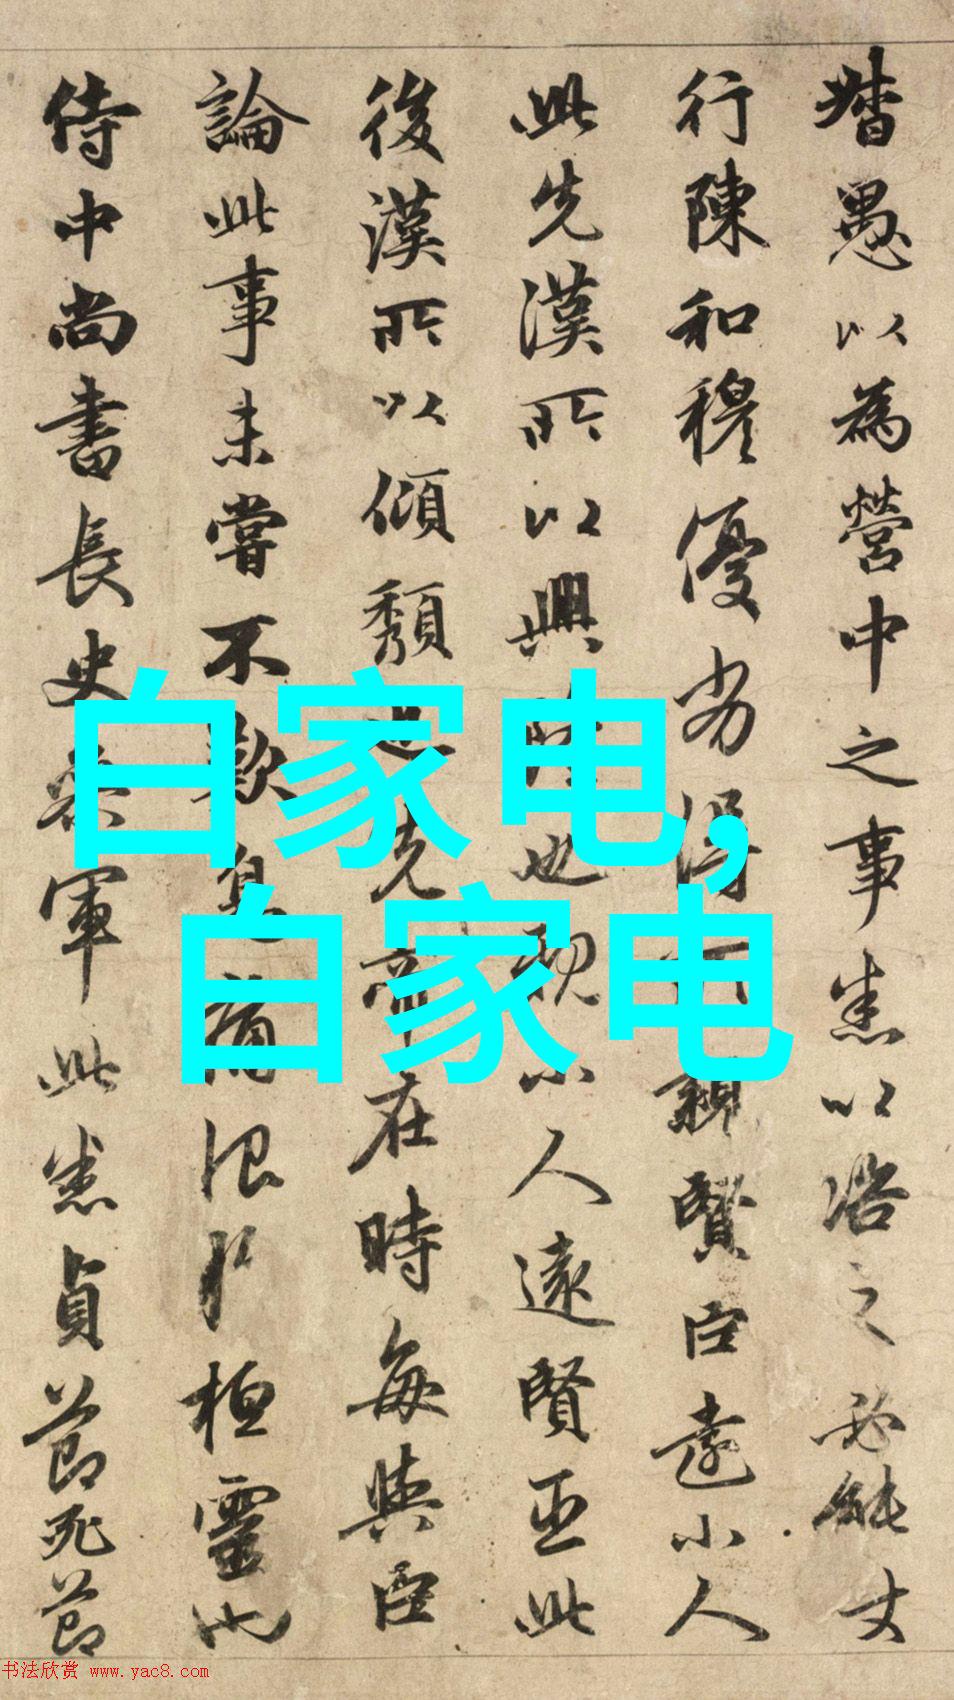 愚以為營中之事悉以之必能
行陳和穆優劣得親賢臣遠小人
此先漢所以興隆也親小人遠賢臣此
後漢所以傾頹也先帝在時每與臣
論此事未嘗不歎息痛恨於桓靈也
侍中尚書長史參軍此悉貞節死節
白家电,
白家电
书法欣赏 www.yac8.com